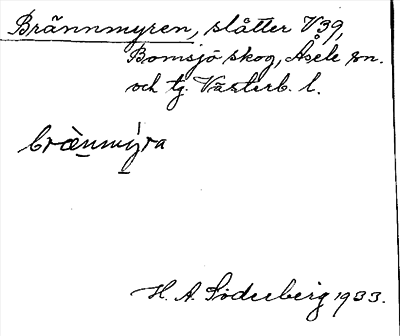 Brännmyren, slåtter V 39,
Bomsjö skog, Åsele sn.
och tg. Västerb. l.
bræ̀n̠mý̠ra
H. A. Söderberg 1933.